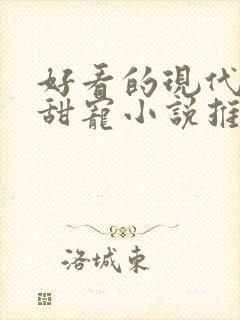 好看的現代
甜寵小說推
洛城東